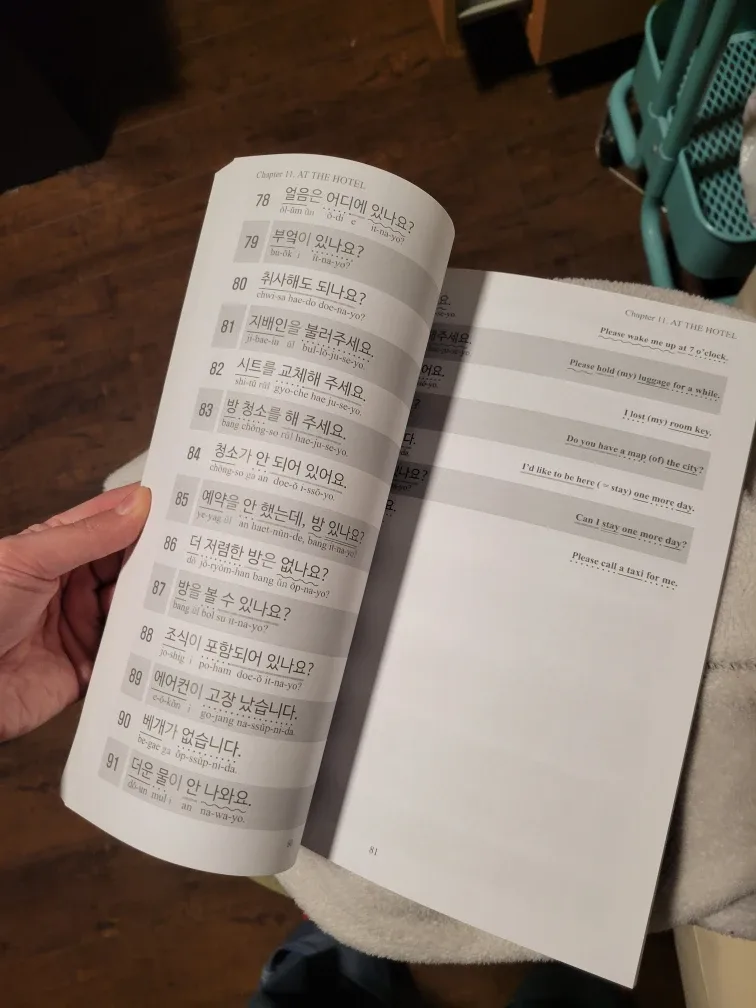 Chapter 11. AT THE HOTEL
78 얼음은 어디에 있나요?
ŏl-ŭm ŭn ŏ-di e it-na-yo?
79 부엌이 있나요?
bu-ŏk i it-na-yo?
80 취사해도 되나요?
chwi-sa hae-do doe-na-yo?
81 지배인을 불러주세요.
ji-bae-in ŭl bul-lŏ-ju-se-yo.
82 시트를 교체해 주세요.
shi-tŭ rŭl gyo-che hae ju-se-yo.
83 방 청소를 해 주세요.
bang chŏng-so rŭl hae-ju-se-yo.
84 청소가 안 되어 있어요.
chŏng-so ga an doe-ŏ i-ssŏ-yo.
85 예약을 안 했는데, 방 있나요?
ye-yag ŭl an haet-nŭn-de, bang it-na-yo?
86 더 저렴한 방은 없나요?
dŏ jŏ-ryŏm-han bang ŭn ŏp-na-yo?
87 방을 볼 수 있나요?
bang ŭl bol su it-na-yo?
88 조식이 포함되어 있나요?
jo-shig i po-ham doe-ŏ it-na-yo?
89 에어컨이 고장 났습니다.
e-ŏ-kŏn i go-jang na-ssŭp-ni-da.
90 베개가 없습니다.
be-gae ga ŏp-ssŭp-ni-da.
91 더운 물이 안 나와요.
dŏ-un mul i an na-wa-yo.
Chapter 11. AT THE HOTEL
Please wake me up at 7 o'clock.
주세요.
Please hold (my) luggage for a while.
I lost (my) room key.
Do you have a map (of) the city?
I'd like to be here ( = stay) one more day.
Can I stay one more day?
Please call a taxi for me.
81